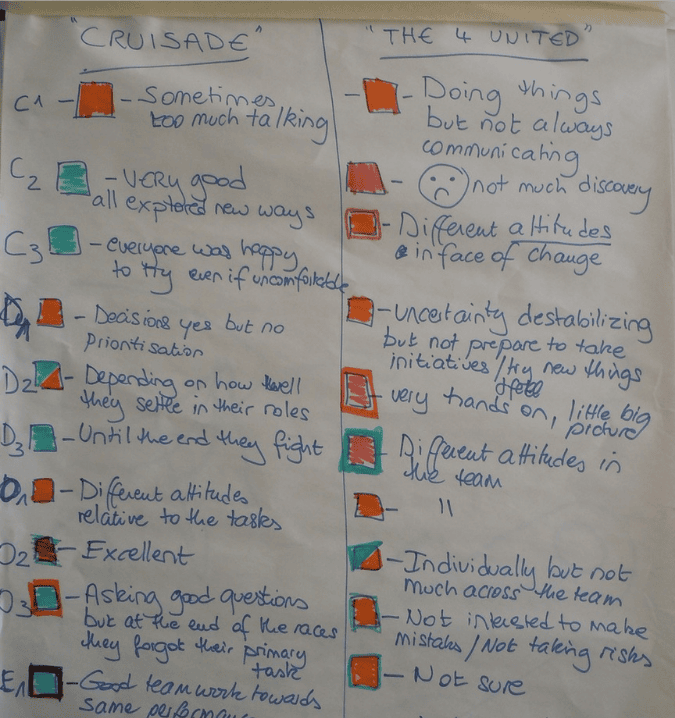 "CRUISADE"
C1 - - Sometimes
too much talking
C2 - VERY good
all explored new ways
C3 - everyone was happy
to try even if uncomfortable
D1 - Decisions yes but no
Prioritisation
D2 - Depending on how well
they settle in their roles
D3 - Until the end they fight
O1 - Different attitudes
relative to the tasks
O2 - Excellent
O3 - Asking good questions
but at the end of the races
they forgot their primary
task
E1 - Good teamwork towards
same performance
"THE 4 UNITED"
- - Doing things
but not always
communicating
- not much discovery
- Different attitudes
in face of change
- uncertainty destabilizing
but not prepare to take
initiatives / try new things
- very hands on, little big
picture
- Different attitudes in
the team
- "
- Individually but not
much across the team
- Not interested to make
mistaks / Not taking risks
- Not sure